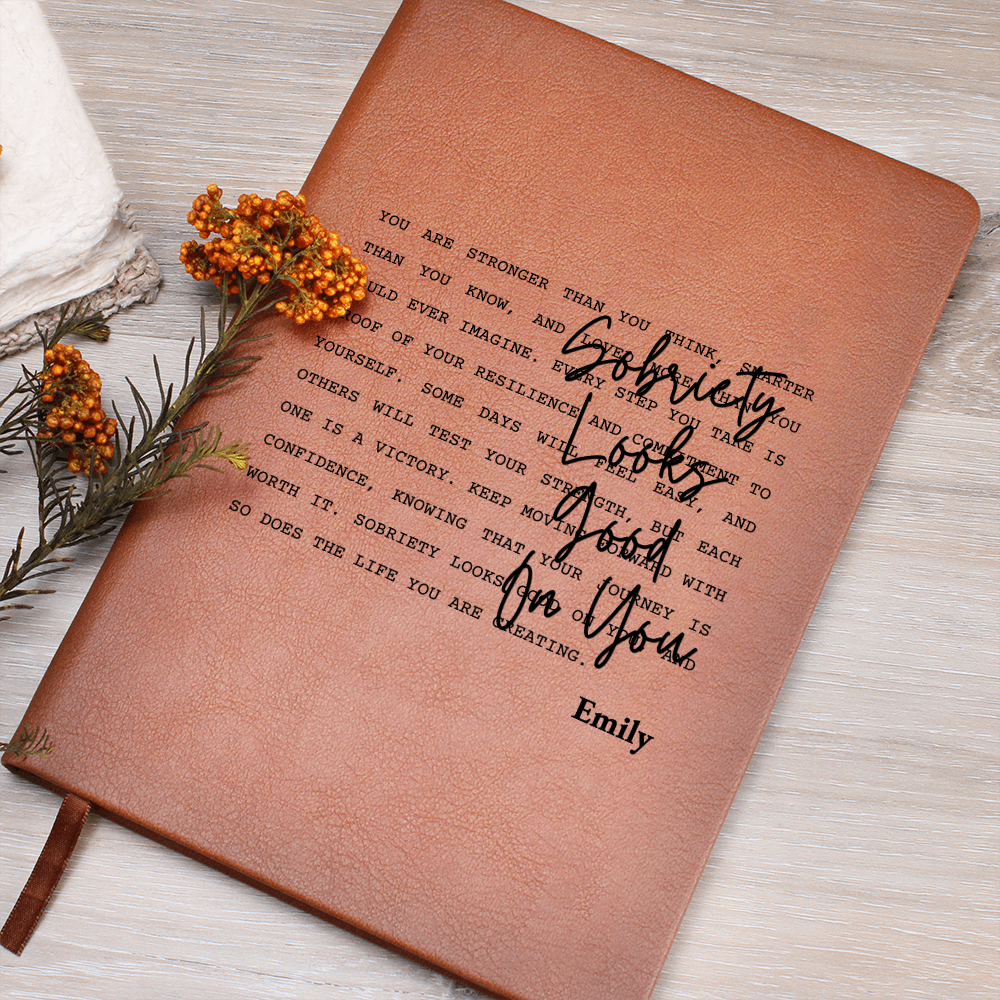 YOU ARE STRONGER THAN YOU THINK, SMARTER
THAN YOU KNOW, AND LOVED MORE THAN YOU
ULD EVER IMAGINE. EVERY STEP YOU TAKE IS
ROOF OF YOUR RESILIENCE AND COMMITMENT TO
YOURSELF. SOME DAYS WILL FEEL EASY, AND
OTHERS WILL TEST YOUR STRENGTH, BUT EACH
ONE IS A VICTORY. KEEP MOVING FORWARD WITH
CONFIDENCE, KNOWING THAT YOUR JOURNEY IS
WORTH IT. SOBRIETY LOOKS GOOD ON YOU AND
SO DOES THE LIFE YOU ARE CREATING.
Sobriety
Looks
Good
On You
Emily